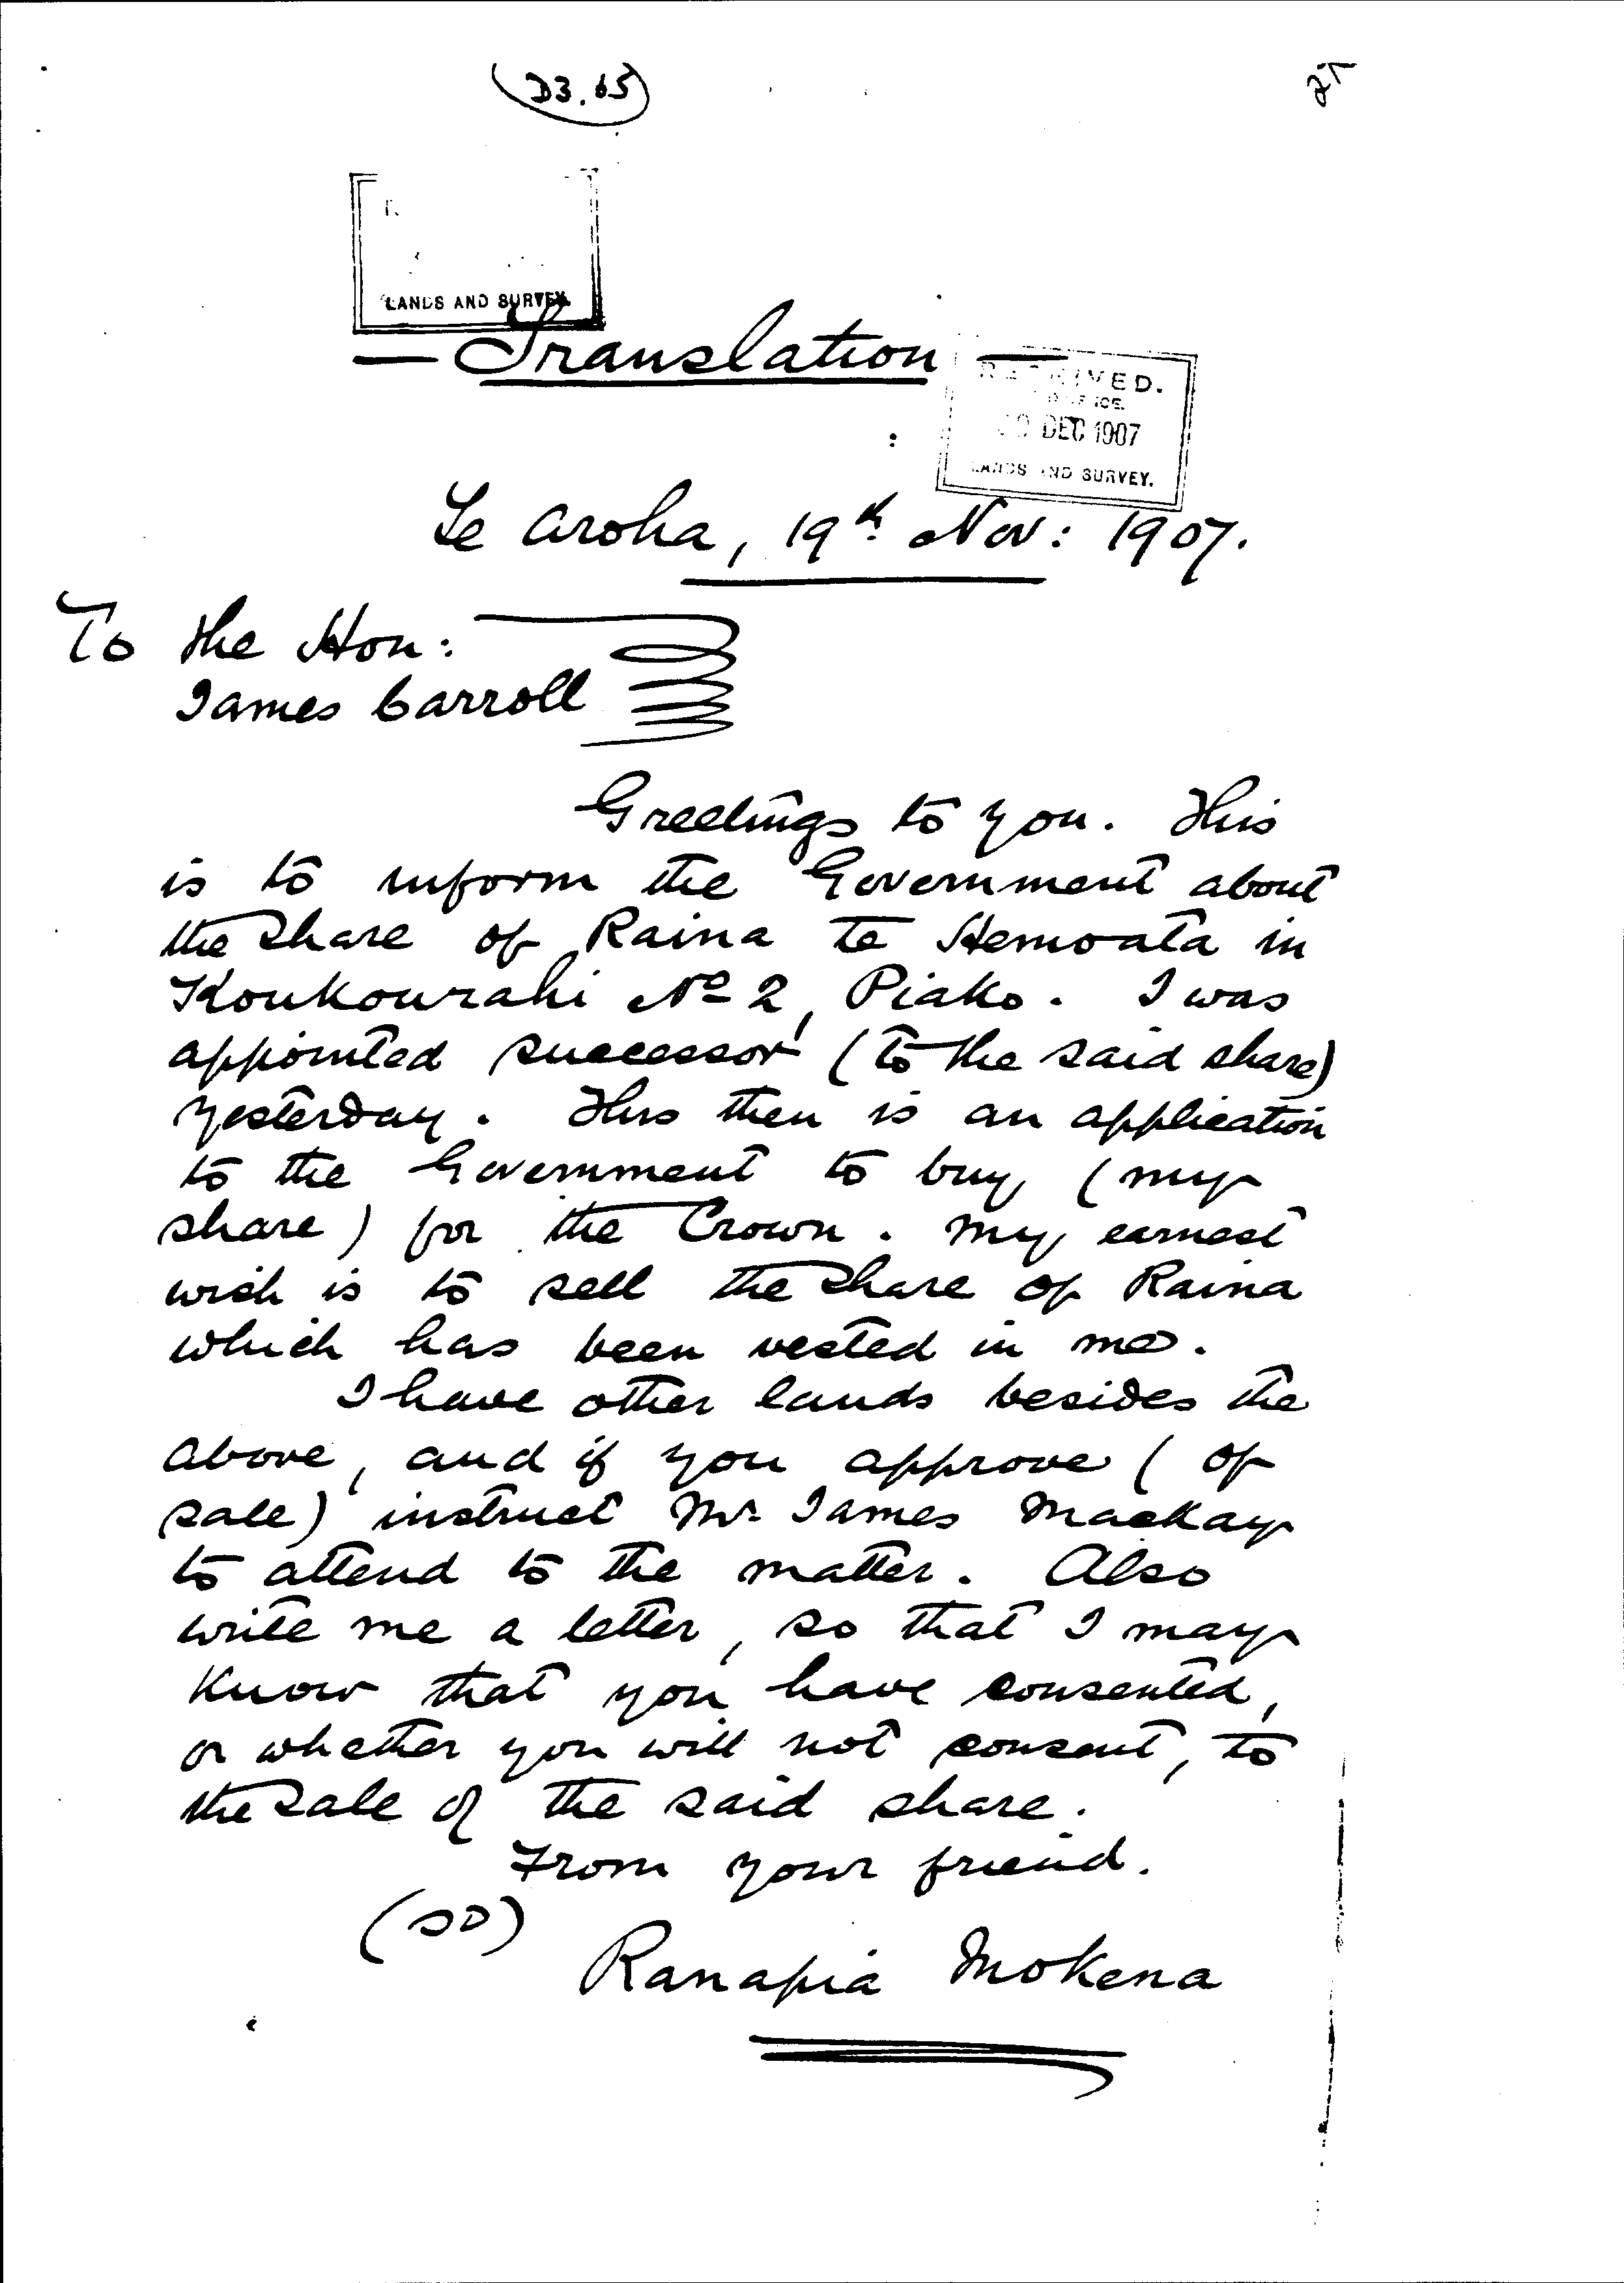 (D3.65)
LANDS AND SURVEY.
— Translation —
RECEIVED.
DEC 1907
LANDS AND SURVEY.
Te Aroha, 19th. Nov: 1907.
To the Hon:
James Carroll
Greetings to you. This
is to inform the Government about
the share of Raina te Hemoata in
Koukourahi No 2, Piako. I was
appointed successor (to the said share)
yesterday. This then is an application
to the Government to buy (my
share) for the Crown. My earnest
wish is to sell the share of Raina
which has been vested in me.
I have other lands besides the
above, and if you approve (of
sale) instruct Mr. James Mackay
to attend to the matter. Also
write me a letter, so that I may
know that you have consented,
or whether you will not consent, to
the sale of the said share.
From your friend.
(SD)
Ranapia Mokena